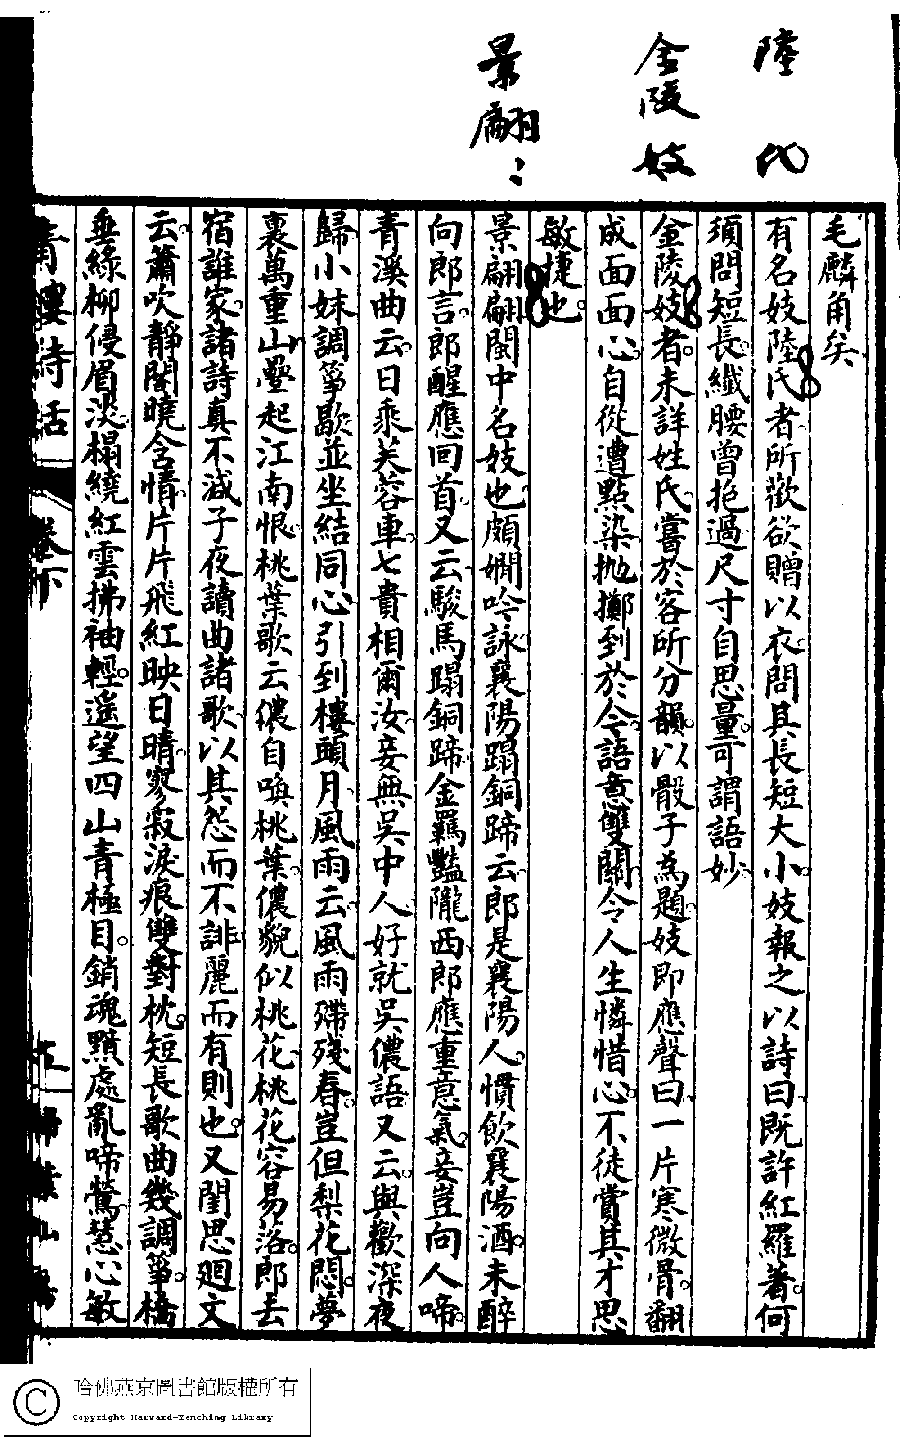 陸氏
金陵妓
景翩〻
毛麟角矣
有名妓陸氏者所歡欲贈以衣問其長短大小妓報之以詩曰既許紅羅著何
須問短長纖腰曾抱過尺寸自思量可謂語妙
金陵妓者未詳姓氏嘗於客所分韻以骰子為題妓即應聲曰一片寒微骨翻
成面面心自從遭點染拋擲到於今語意雙關令人生憐惜心不徒賞其才思
敏捷也
景翩翩閩中名妓也頗嫺吟詠襄陽蹋銅蹄云郎是襄陽人慣飲襄陽酒未醉
向郎言郎醒應回首又云駿馬蹋銅蹄金羈豔隴西郎應重意氣妾豈向人啼
青溪曲云日乘芙蓉車七貴相爾汝妾無吳中人好就吳儂語又云與歡深夜
歸小妹調箏歇並坐結同心引到樓頭月風雨云風雨殢殘春豈但梨花悶夢
裏萬重山疊起江南恨桃葉歌云儂自喚桃葉儂貌似桃花桃花容易落郎去
宿誰家諸詩真不減子夜讀曲諸歌以其怨而不誹麗而有則也又閨思廻文
云蕭吹靜閣曉含情片片飛紅映日晴寥寂淚痕雙對枕短長歌曲幾調箏橋
垂綠柳侵眉淡榻繞紅雲拂袖輕遥望四山青極目銷魂黯處亂啼鶯慧心敏
青樓詩話
卷下
掃葉山房
哈佛燕京圖書館版權所有
Copyright Harvard-Yenching Library